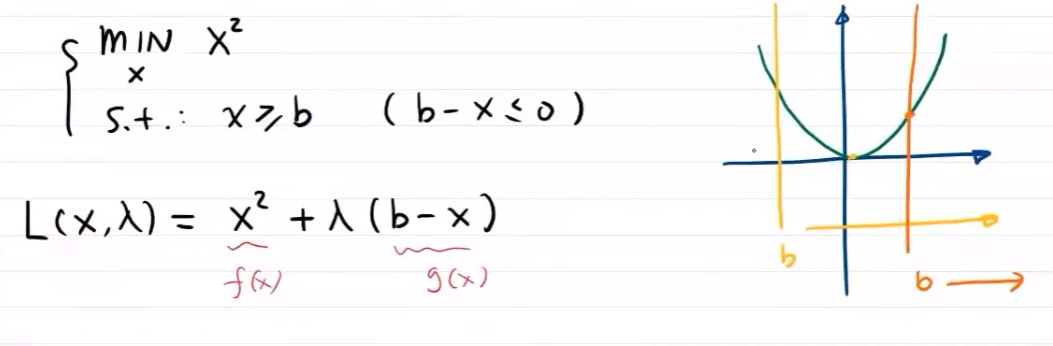 MIN x²
x
s.t.: x ≥ b (b - x ≤ 0)
L(x,λ) = x² + λ(b-x)
f(x) g(x)
b
b